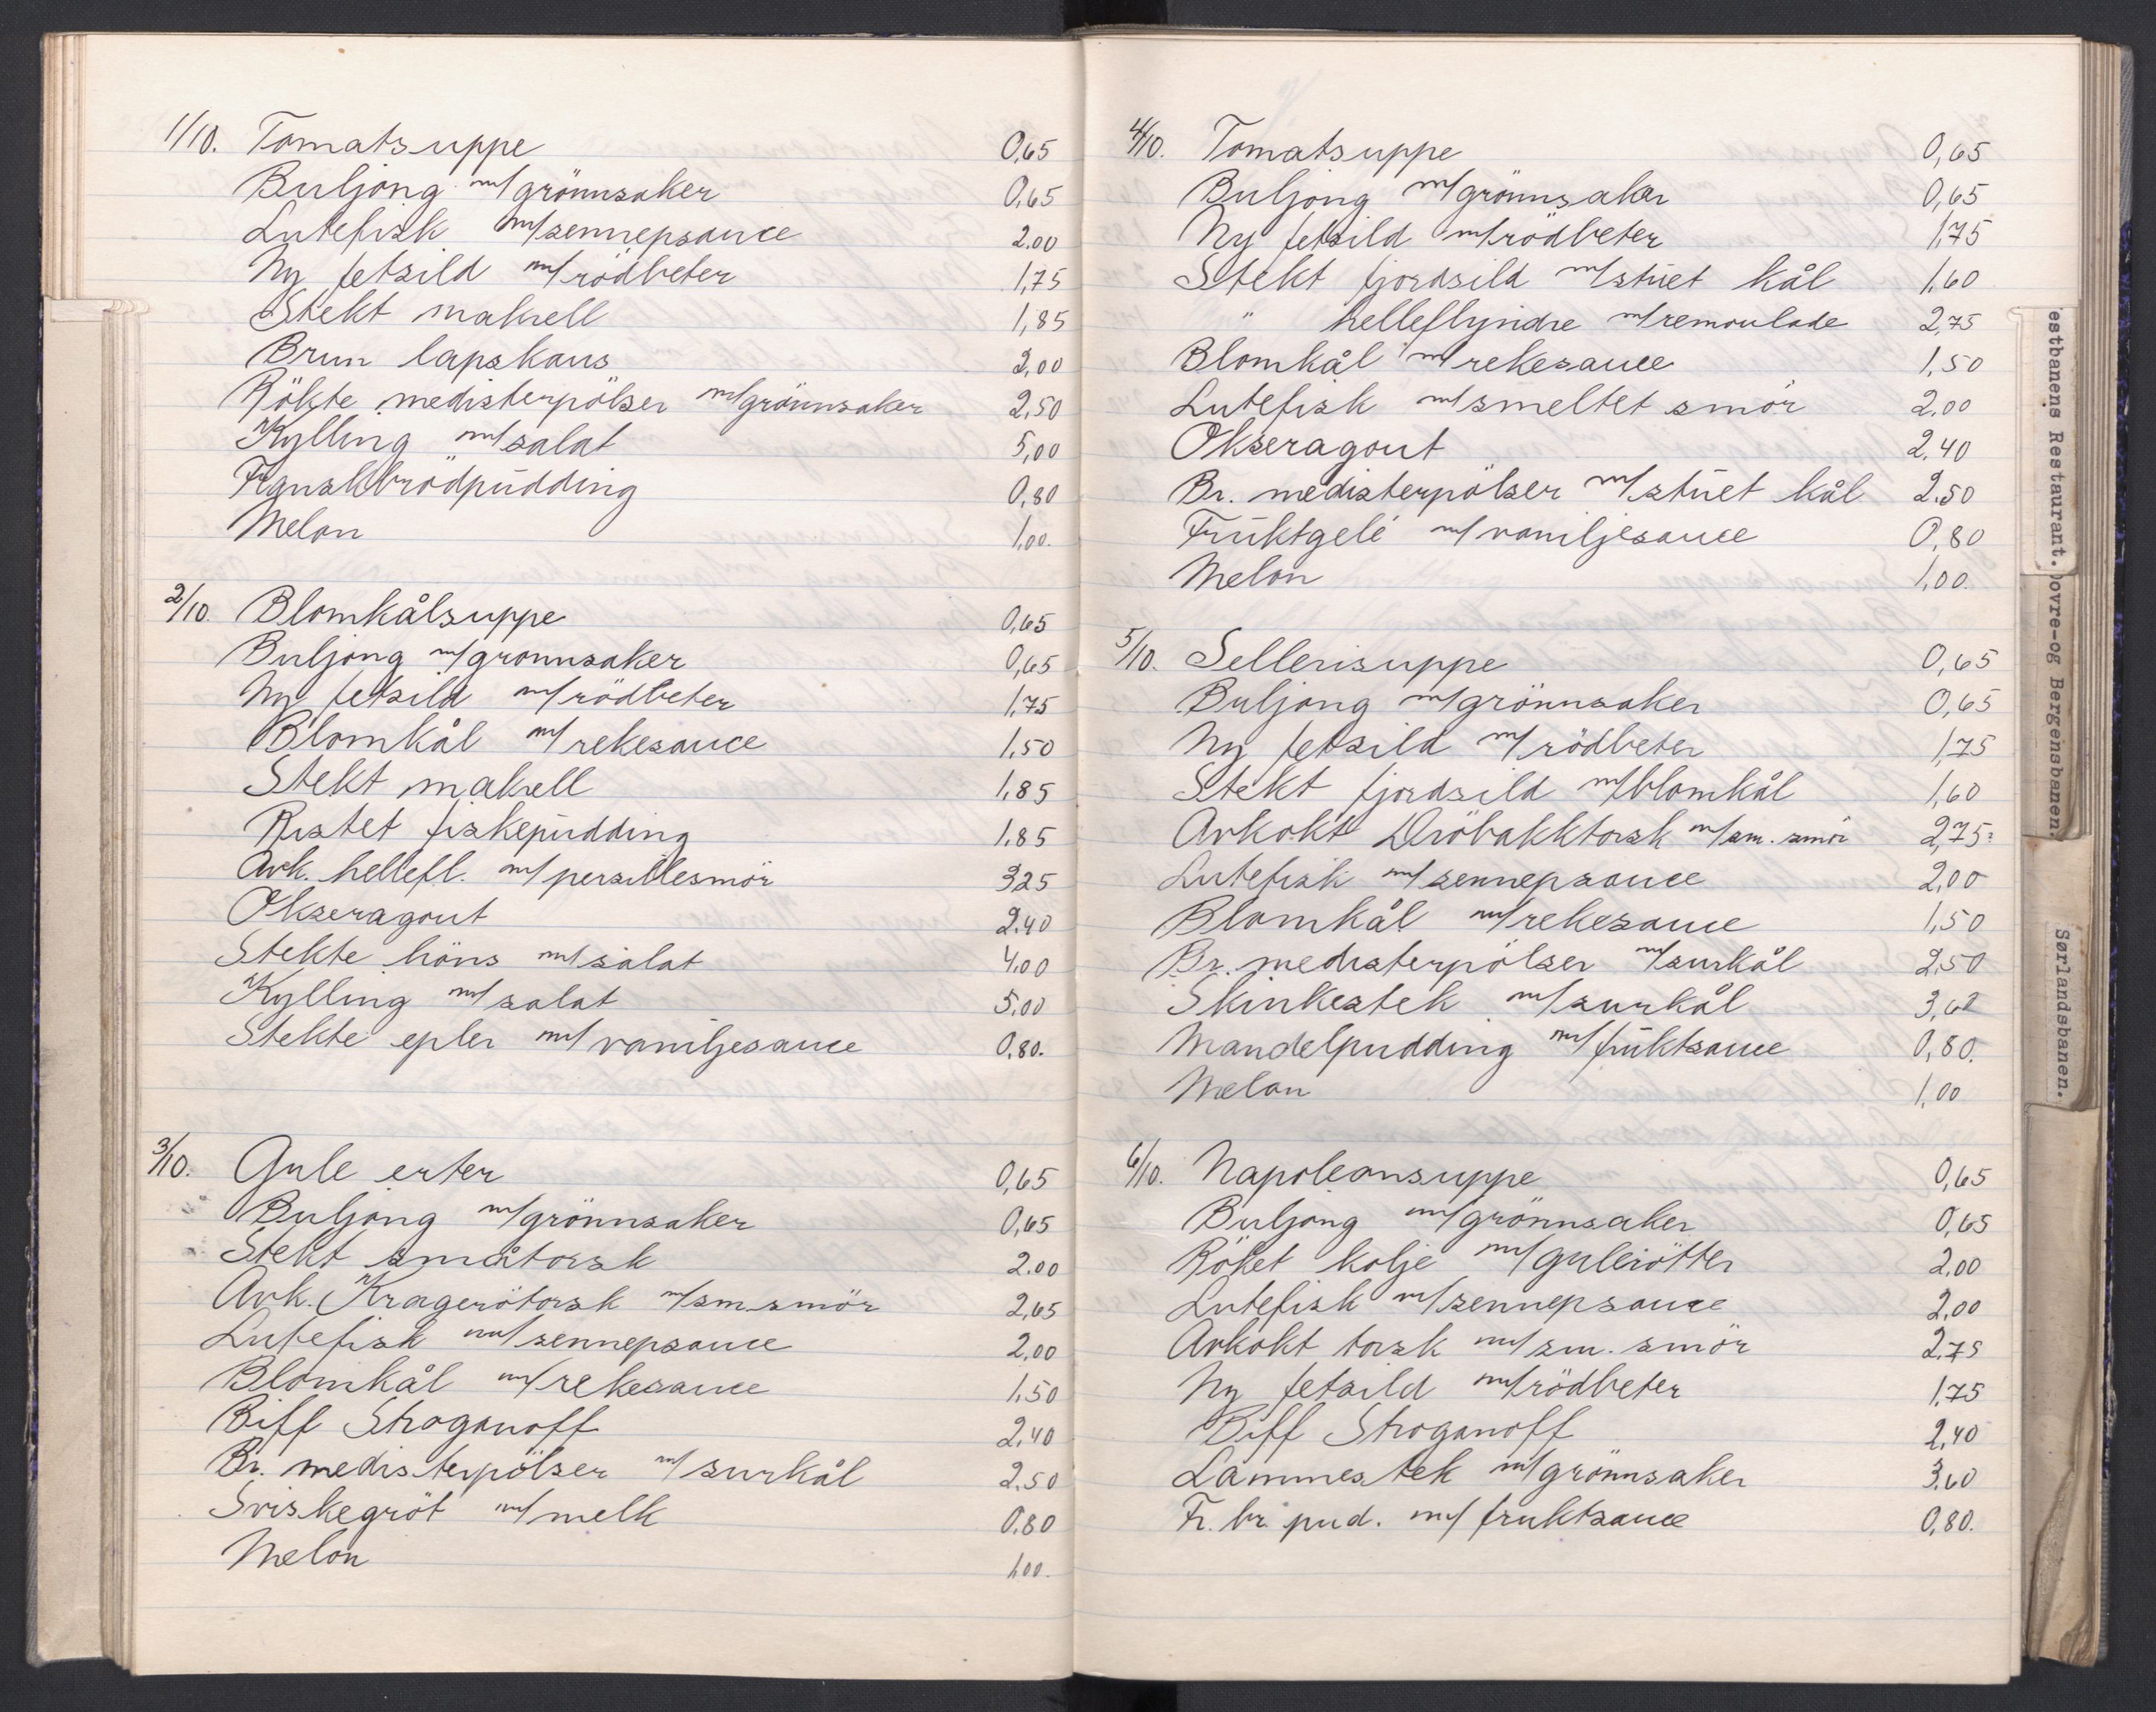 1/10. Tomatsuppe 0,65
Buljong m/grönnsaker 0,65
Lutefisk m/sennepsauce 2.00
Ny fetsild m/rödbeter 1,75
Stekt makrell 1,85
Brun lapskaus 2,00
Rökte medisterpölser m/grönnsaker 2,50
Kylling m/salat 5,00
Franskbrödpudding 0,80
Melon 1,00.
2/10. Blomkålsuppe 0,65
Buljong m/grønnsaker 0,65
Ny fetsild m/rödbeter 1,75
Blomkål m/rekesauce 1,50
Stekt makrell 1,85
Ristet fiskepudding 1,85
Avk. hellefl. m/persillesmör 325
Okseragout 2.40
Stekte höns m/salat 4,00
Kylling m/salat 5,00
Stekte epler m/vaniljesauce 0,80.
3/10. Gule erter 0,65
Buljong m/grönnsaker 0,65
Stekt småtorsk 2.00
Avk. Kragerötorsk m/sm.smör 2,65
Lutefisk m/sennepsauce 2,00
Blomkål m/rekesauce 1.50
Biff Stroganoff 2,40
Br. medisterpölser m/surkål 2.50
Sviskegröt m/melk 0.80
Melon 1.00.
4/10. Tomatsuppe 0,65
Buljong m/grönnsaker 0,65
Ny fetsild m/rödbeter 1,75
Stekt fjordsild m/stuet kål 1,60
" helleflyndre m/remoulade 2,75
Blomkål m/rekesauce 1,50
Lutefisk m/smeltet smör 2,00
Okseragout 2,40
Br. medisterpölser m/stuet kål 2.50
Fruktgelé m/vaniljesauce 0,80
Melon 1,00.
5/10. Sellerisuppe 0,65
Buljong m/grönnsaker 0,65
Ny fetsild m/rödbeter 1,75
Stekt fjordsild m/blomkål 1,60
Avkokt Dröbakktorsk m/sm. smör 2,75.
Lutefisk m/sennepsauce 2,00
Blomkål m/rekesauce 1,50
Br. medisterpölser m/surkål 2,50
Skinkestek m/surkål 3,62
Mandelpudding m/fruktsauce 0,80.
Melon 1,00
6/10. Napoleonsuppe 0,65
Buljong m/grönnsaker 0,65
Röket kolje m/gulerötter 2,00
Lutefisk m/sennepsauce 2,00
Avkokt torsk m/sm. smör 2.75
Ny fetsild m/rödbeter 1,75
Biff Stroganoff 2,40
Lammestek m/grönnsaker 3.60
Fr. br. pud. m/fruktsauce 0,80.
estbanens Restaurant.
ovre-og Bergensbanen
Sørlandsbanen.